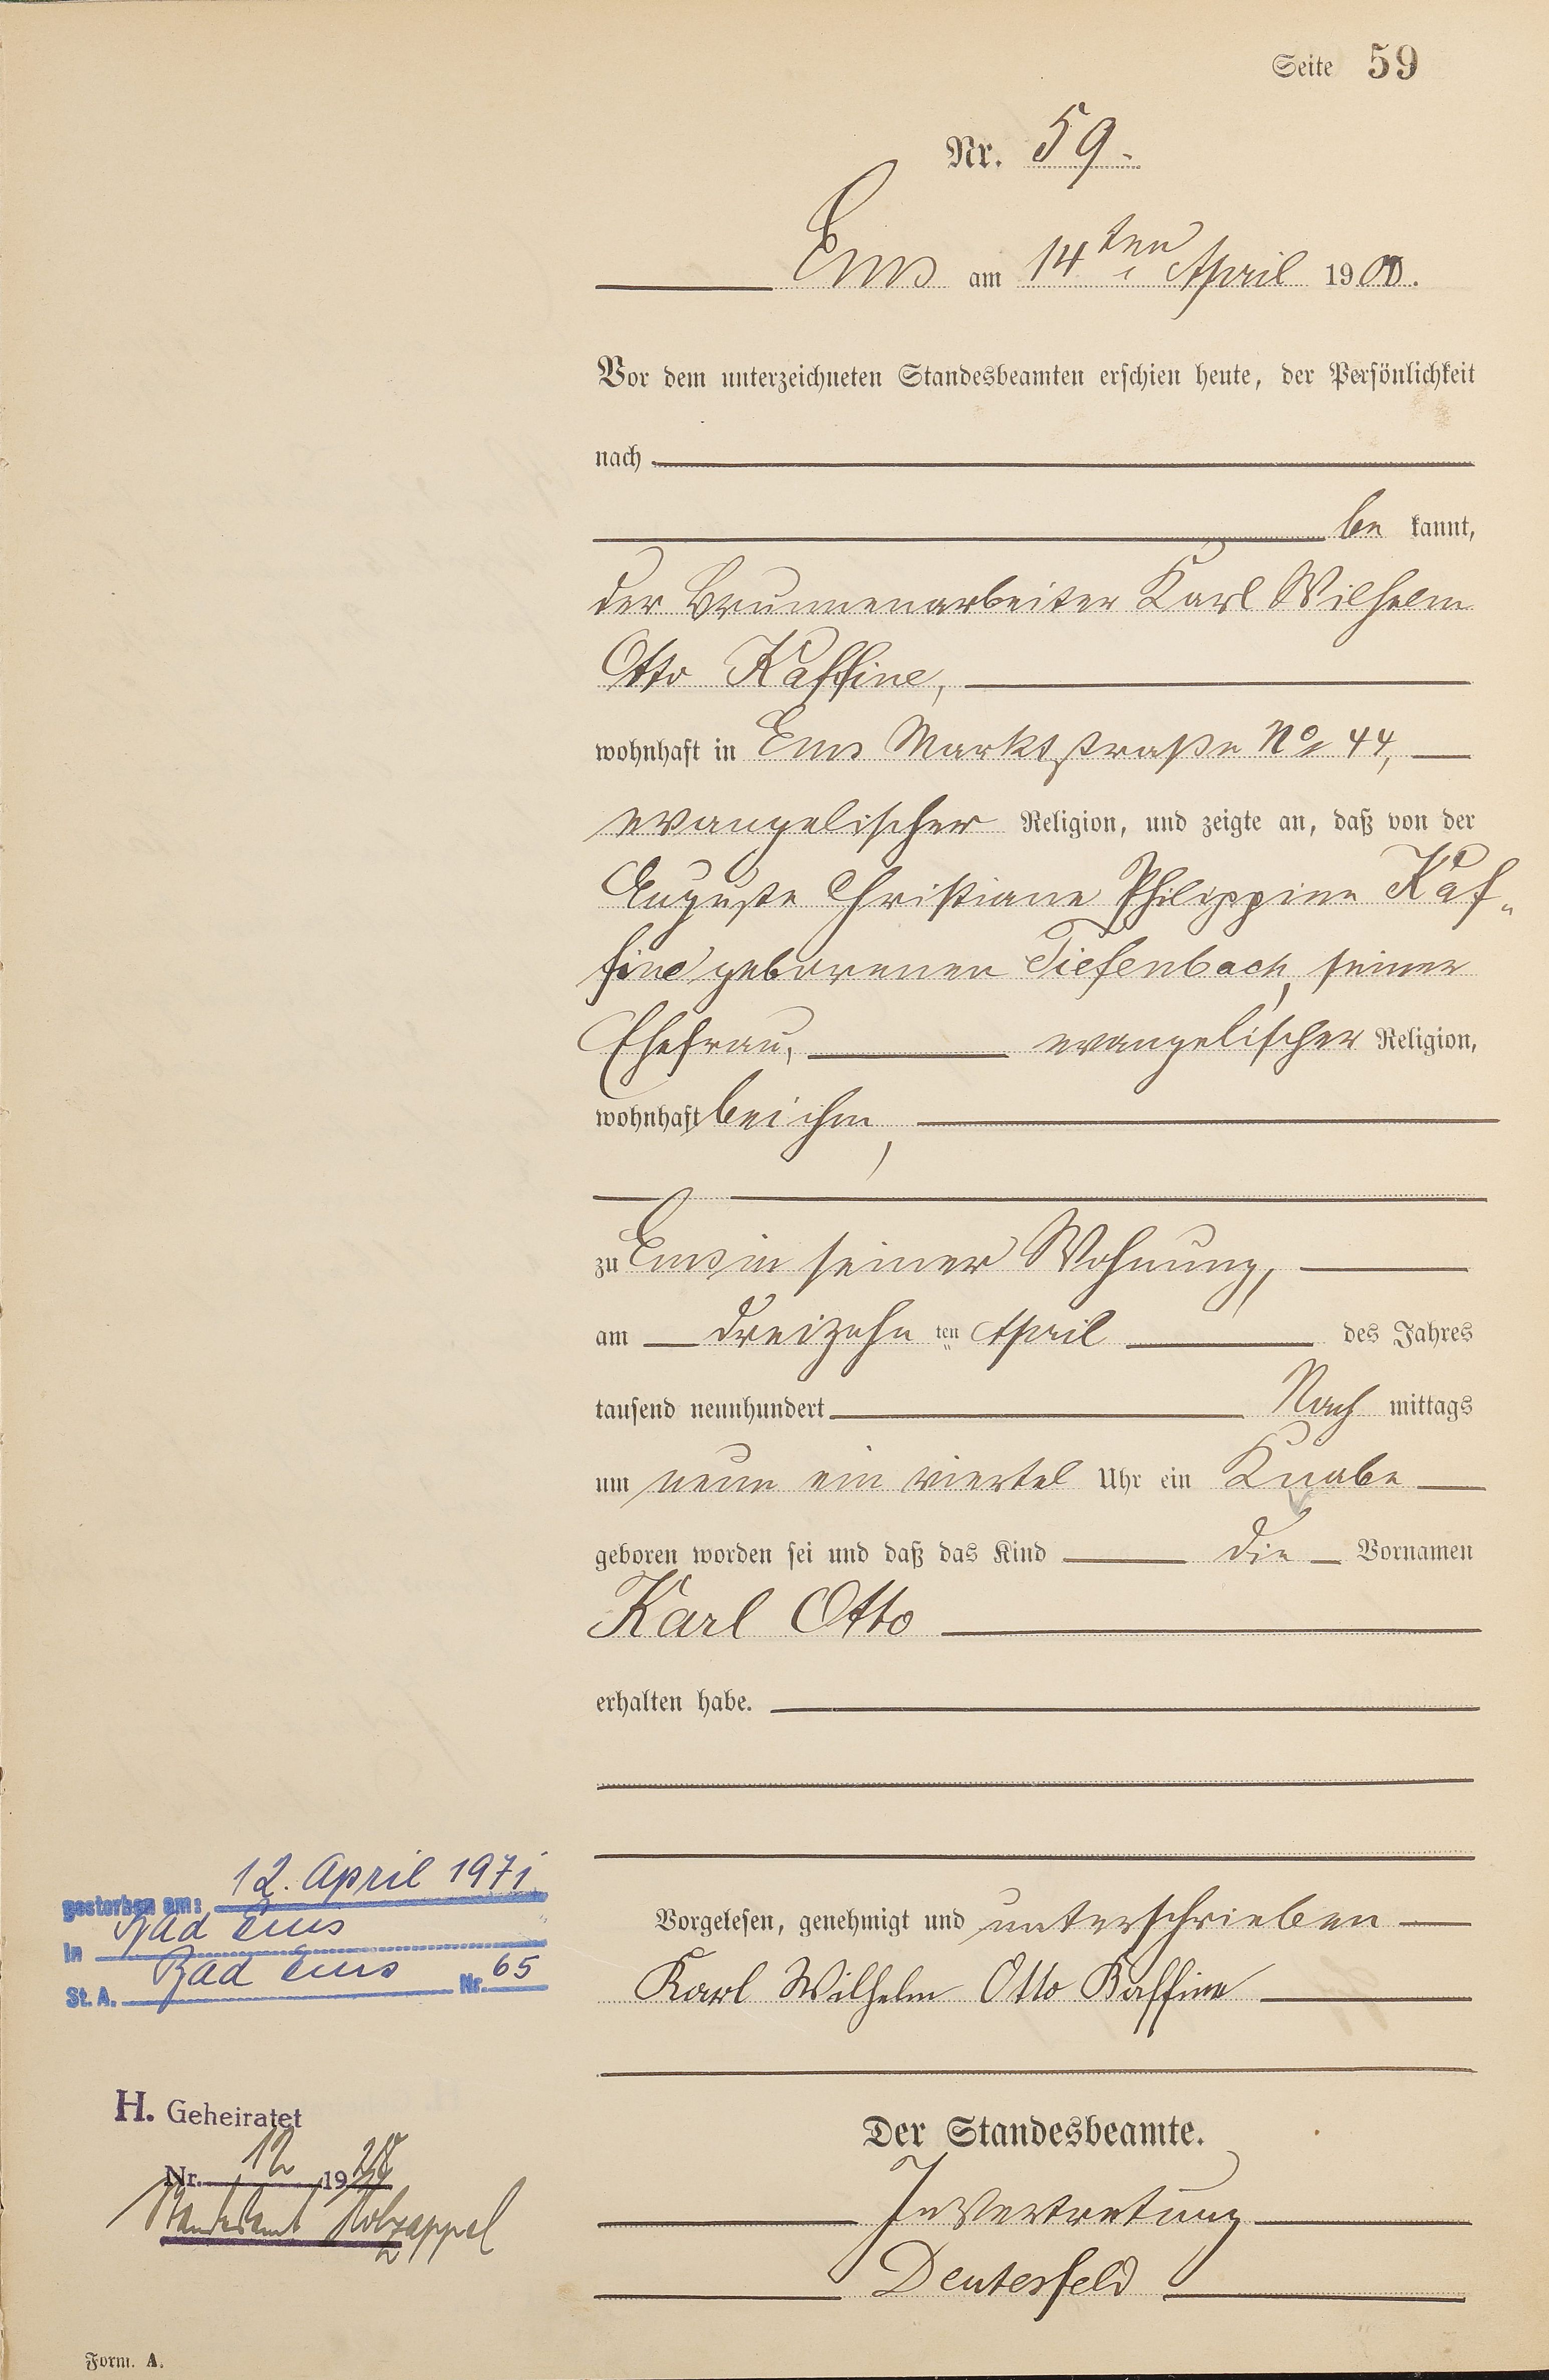 Seite 59
Nr. 59.
Ems am 14ten April 1900.
Vor dem unterzeichneten Standesbeamten erschien heute, der Persönlichkeit
nach
be kannt,
der Brunnenarbeiter Karl Wilhelm
Otto Kaffine,
wohnhaft in Ems Marktstraße No 44,
evangelischer Religion, und zeigte an, daß von der
Auguste Christiane Philippine Kaf-
fine geborenen Tiefenbach, seiner
Ehefrau, evangelischer Religion,
wohnhaft bei ihm,
zu Ems in seiner Wohnung,
am dreizehn ten April des Jahres
tausend neunhundert Nach mittags
um neun ein viertel Uhr ein Knabe
geboren worden sei und daß das Kind die Vornamen
Karl Otto
erhalten habe.
Vorgelesen, genehmigt und unterschrieben
Karl Wilhelm Otto Kaffine
Der Standesbeamte.
In Vertretung
Deutesfeld
gestorben am: 12. April 1971
in Bad Ems
St. A. Bad Ems Nr. 65
H. Geheiratet
Nr. 12 1928
Standesamt Holzappel
Form. A.